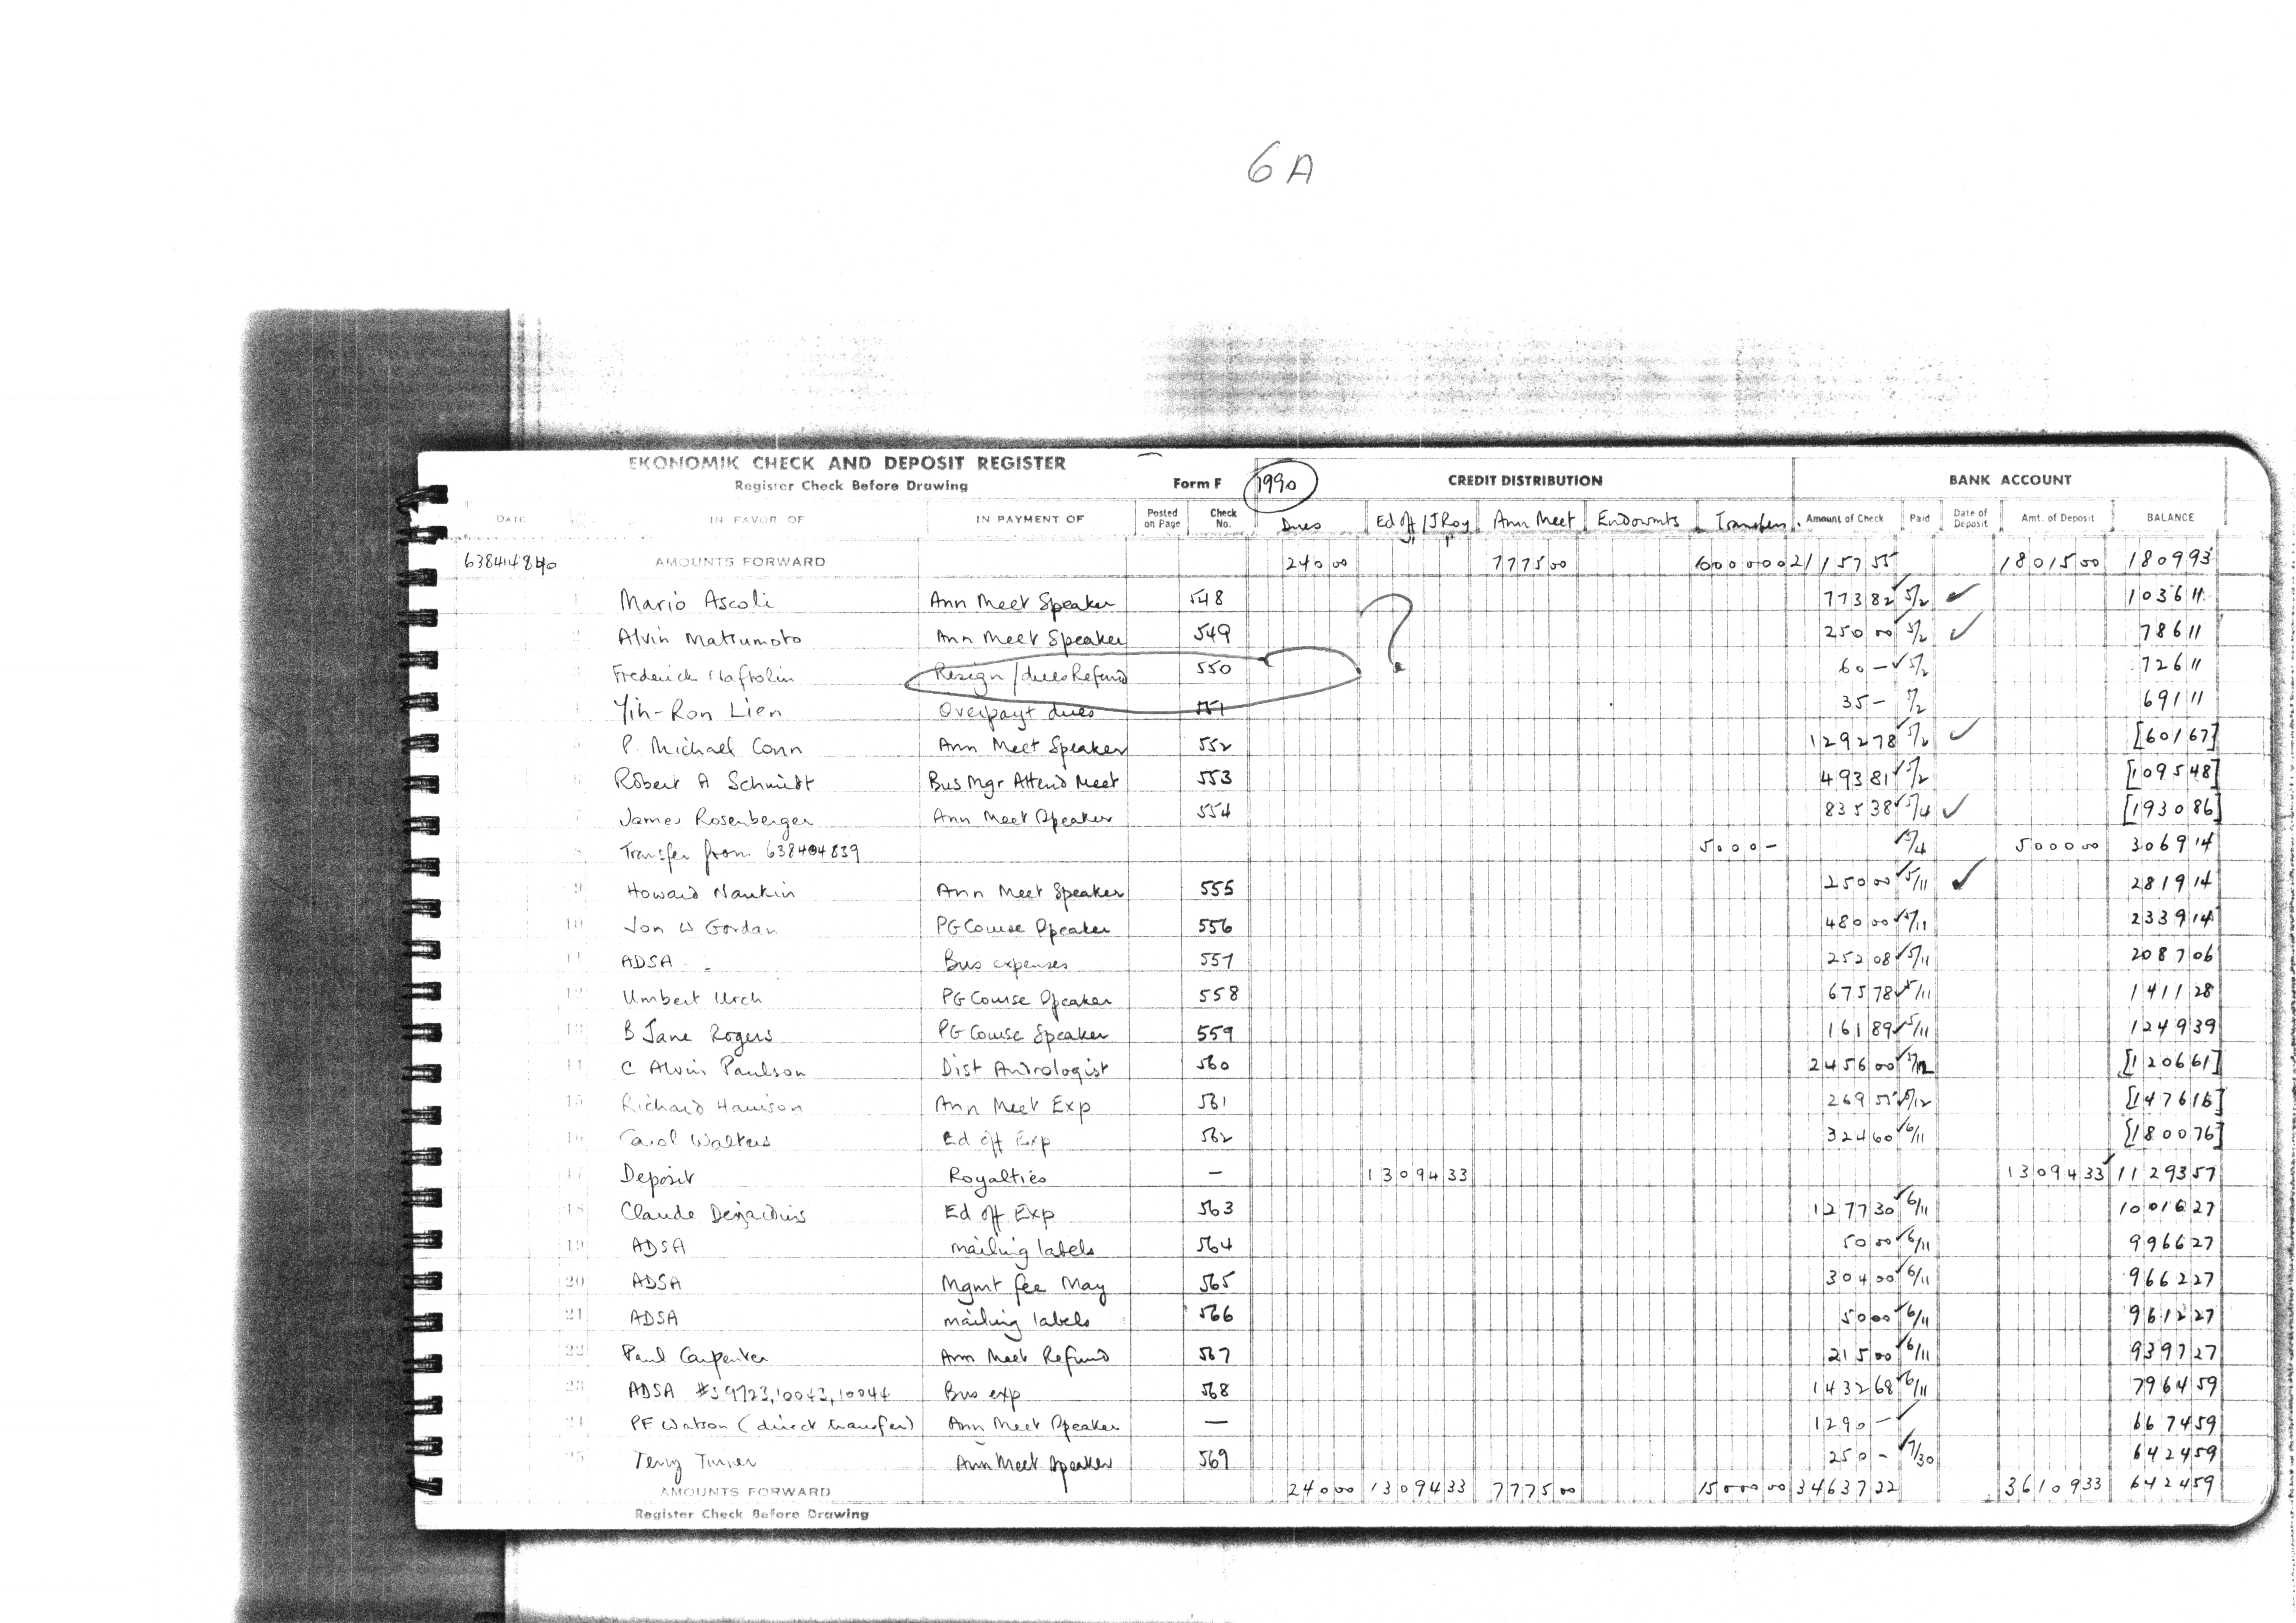 6A
EKONOMIK CHECK AND DEPOSIT REGISTER
Register Check Before Drawing Form F 1990 CREDIT DISTRIBUTION BANK ACCOUNT
DATE IN FAVOR OF IN PAYMENT OF Posted on Page Check No. Dues Ed off / JRoy Ann Meet Endowmts Transfers Amount of Check Paid Date of Deposit Amt. of Deposit BALANCE
638414840 AMOUNTS FORWARD 240 00 7775 00 60000 00 21157 55 18015 00 1809 93
1 Mario Ascoli Ann Meet Speaker 548 773 82 ✓ 5/2 ✓ 1036 11
2 Alvin Matsumoto Ann Meet Speaker 549 250 00 5/2 ✓ 786 11
3 Frederick Naftolin Resign / dues Refund 550 ? 60 — ✓ 5/2 726 11
4 Yih-Ron Lien Overpayt dues 551 35 — 5/2 691 11
5 P. Michael Conn Ann Meet Speaker 552 1292 78 ✓ 5/2 ✓ [601 67]
6 Robert A Schmidt Bus Mgr Attend Meet 553 493 81 ✓ 5/2 [1095 48]
7 James Rosenberger Ann Meet Speaker 554 835 38 ✓ 5/4 ✓ [1930 86]
8 Transfer from 638404839 5000 — 5/4 5000 00 3069 14
9 Howard Nankin Ann Meet Speaker 555 250 00 ✓ 5/11 ✓ 2819 14
10 Jon W Gordan PG Course Speaker 556 480 00 ✓ 5/11 2339 14
11 ADSA Bus expenses 557 252 08 ✓ 5/11 2087 06
12 Umbert Urch PG Course Speaker 558 675 78 ✓ 5/11 1411 28
13 B Jane Rogers PG Course Speaker 559 161 89 ✓ 5/11 1249 39
14 C Alvin Paulson Dist Andrologist 560 2456 00 ✓ 5/12 [1206 61]
15 Richard Harrison Ann Meet Exp 561 269 55 ✓ 5/12 [1476 16]
16 Carol Walters Ed off Exp 562 324 60 ✓ 6/11 [1800 76]
17 Deposit Royalties — 13094 33 13094 33 ✓ 11293 57
18 Claude Desjardins Ed off Exp 563 1277 30 ✓ 6/11 10016 27
19 ADSA mailing labels 564 50 00 ✓ 6/11 9966 27
20 ADSA Mgmt fee May 565 304 00 ✓ 6/11 9662 27
21 ADSA mailing labels 566 50 00 ✓ 6/11 9612 27
22 Paul Carpenter Ann Meet Refund 567 215 00 ✓ 6/11 9397 27
23 ADSA #s 9723, 10043, 10044 Bus exp 568 1432 68 ✓ 6/11 7964 59
24 PF Watson (direct transfer) Ann Meet Speaker — 1290 — ✓ 6674 59
25 Terry Turner Ann Meet Speaker 569 250 — ✓ 7/30 6424 59
AMOUNTS FORWARD 240 00 13094 33 7775 00 15000 00 34637 22 36109 33 6424 59
Register Check Before Drawing